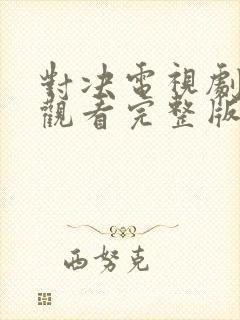 對决電視劇
觀看完整版
西努克